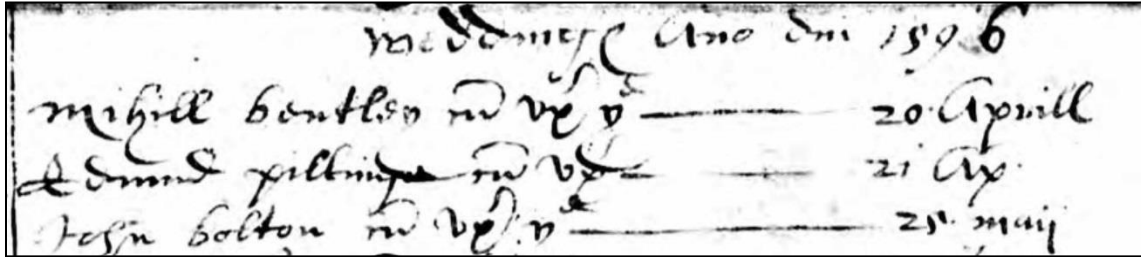 Weddinges Ano dni 1596
Mihill bentley cū vx yd 20 Aprill
Edmund pilling cū vx 21 Ap.
John bolton cū vx yd 25 maij